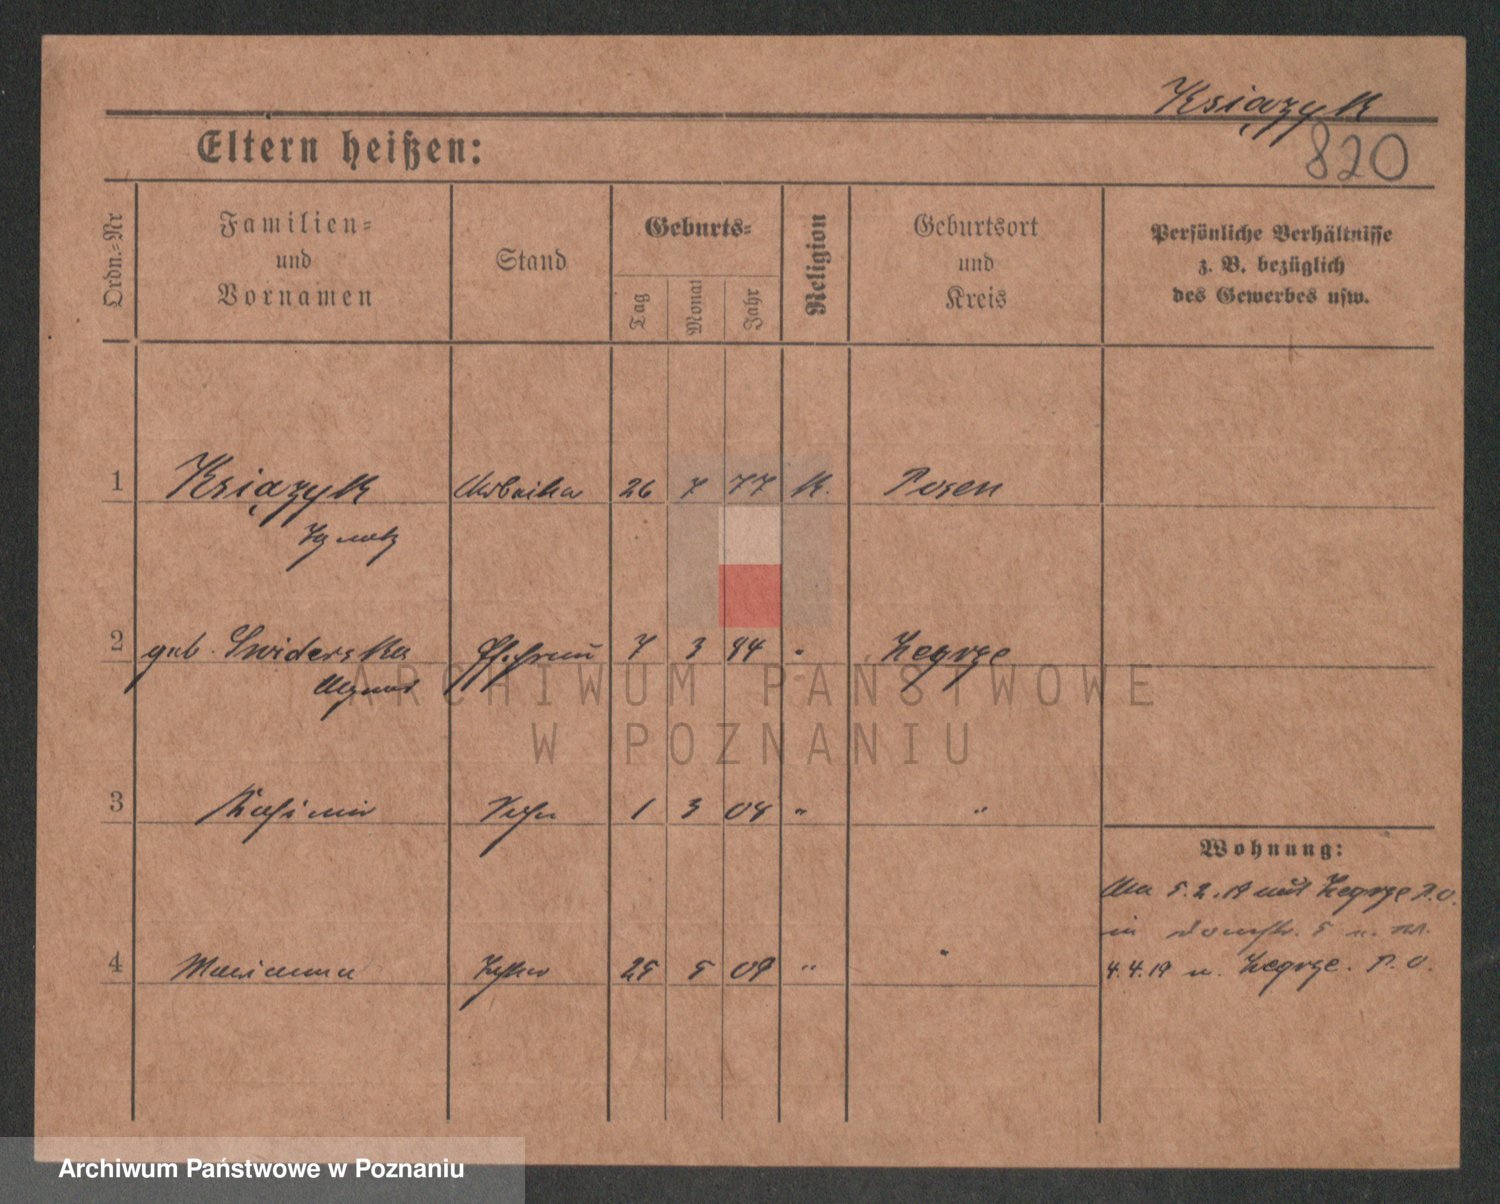 Książyk
820
Eltern heißen:
Ordn.=Nr
Familien=
und
Vornamen
Stand
Geburts=
Tag
Monat
Jahr
Religion
Geburtsort
und
Kreis
Persönliche Verhältnisse
z. B. bezüglich
des Gewerbes usw.
1 Książyk Arbeiter 26 7 77 K. Posen
Ignatz
2 geb. Swiderska Ehefrau 7 3 84 " Zegrze
Agnes
3 Kasimir Sohn 1 3 08 " "
4 Marianna Tochter 25 5 09 " "
Wohnung:
Am 5.2.19 aus Zegrze P.O.
in 5 n.
4.4.19 n. Zegrze. P.O.
ARCHIWUM PAŃSTWOWE
W POZNANIU
Archiwum Państwowe w Poznaniu